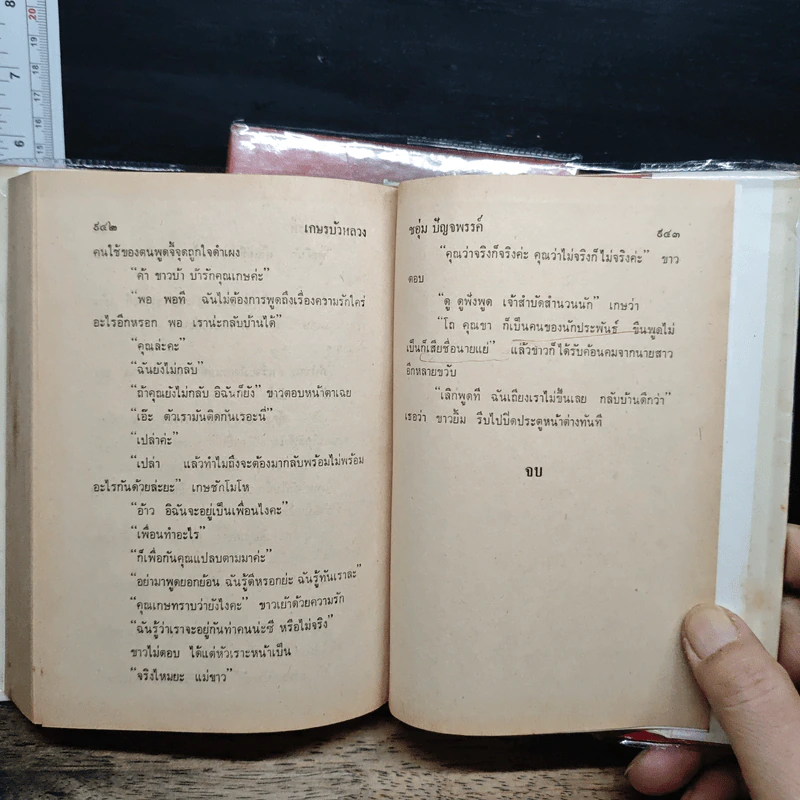 8
7
6
20
19
18
17
16
15
๕๔๒
เกษรบัวหลวง
คนใช้ของตนพูดจี้จุดถูกใจดำเผง
“ค้า ขาวบ้า บ้ารักคุณเกษค่ะ”
“พอ พอที ฉันไม่ต้องการพูดถึงเรื่องความรักใคร่
อะไรอีกหรอก พอ เราน่ะกลับบ้านได้”
“คุณล่ะคะ”
“ฉันยังไม่กลับ”
“ถ้าคุณยังไม่กลับ อิฉันก็ยัง” ขาวตอบหน้าตาเฉย
“เอ๊ะ ตัวเรามันติดกันเรอะนี่”
“เปล่าค่ะ”
“เปล่า แล้วทำไมถึงจะต้องมากลับพร้อมไม่พร้อม
อะไรกันด้วยล่ะยะ” เกษชักโมโห
“อ้าว อิฉันจะอยู่เป็นเพื่อนไงคะ”
“เพื่อนทำอะไร”
“ก็เพื่อกันคุณแปลบตามมาค่ะ”
“อย่ามาพูดยอกย้อน ฉันรู้ดีหรอกย่ะ ฉันรู้ทันเราละ”
“คุณเกษทราบว่ายังไงคะ” ขาวเย้าด้วยความรัก
“ฉันรู้ว่าเราจะอยู่กันท่าคนน่ะซี หรือไม่จริง”
ขาวไม่ตอบ ได้แต่หัวเราะหน้าเป็น
“จริงไหมยะ แม่ขาว”
ชอุ่ม ปัญจพรรค์
๕๔๓
“คุณว่าจริงก็จริงค่ะ คุณว่าไม่จริงก็ไม่จริงค่ะ” ขาว
ตอบ
“ดู ดูฟังพูด เจ้าสำบัดสำนวนนัก” เกษว่า
“โถ คุณขา ก็เป็นคนของนักประพันธ์ ขืนพูดไม่
เป็นก็เสียชื่อนายแย่” แล้วขาวก็ได้รับค้อนคมจากนายสาว
อีกหลายขวับ
“เลิกพูดที ฉันเถียงเราไม่ขึ้นเลย กลับบ้านดีกว่า”
เธอว่า ขาวยิ้ม รีบไปปิดประตูหน้าต่างทันที
จบ